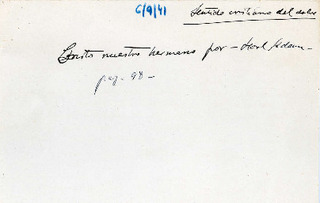 6/9/41
Sentido cristiano del dolor
Cristo nuestro hermano por - Karl Adam -
pag. 98 -